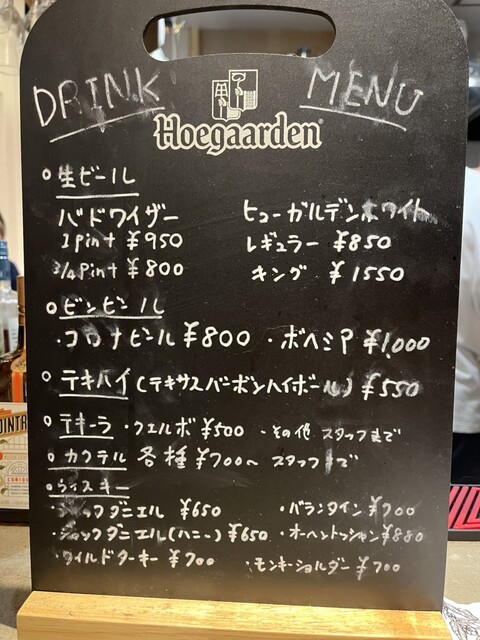 DRINK MENU
Hoegaarden
○生ビール
バドワイザー ヒューガルデンホワイト
1pint ¥950 レギュラー ¥850
3/4pint ¥800 キング ¥1550
○ビンビール
・コロナビール ¥800 ・ボヘミア ¥1,000
○テキハイ(テキサスバーボンハイボール) ¥550
○テキーラ ・クエルボ ¥500 ・その他 スタッフまで
○カクテル 各種 ¥700〜 スタッフまで
○ウィスキー
・ジャックダニエル ¥650 ・バランタイン ¥700
・ジャックダニエル(ハニー) ¥650 ・オーヘントッシャン ¥880
・ワイルドターキー ¥700 ・モンキーショルダー ¥700